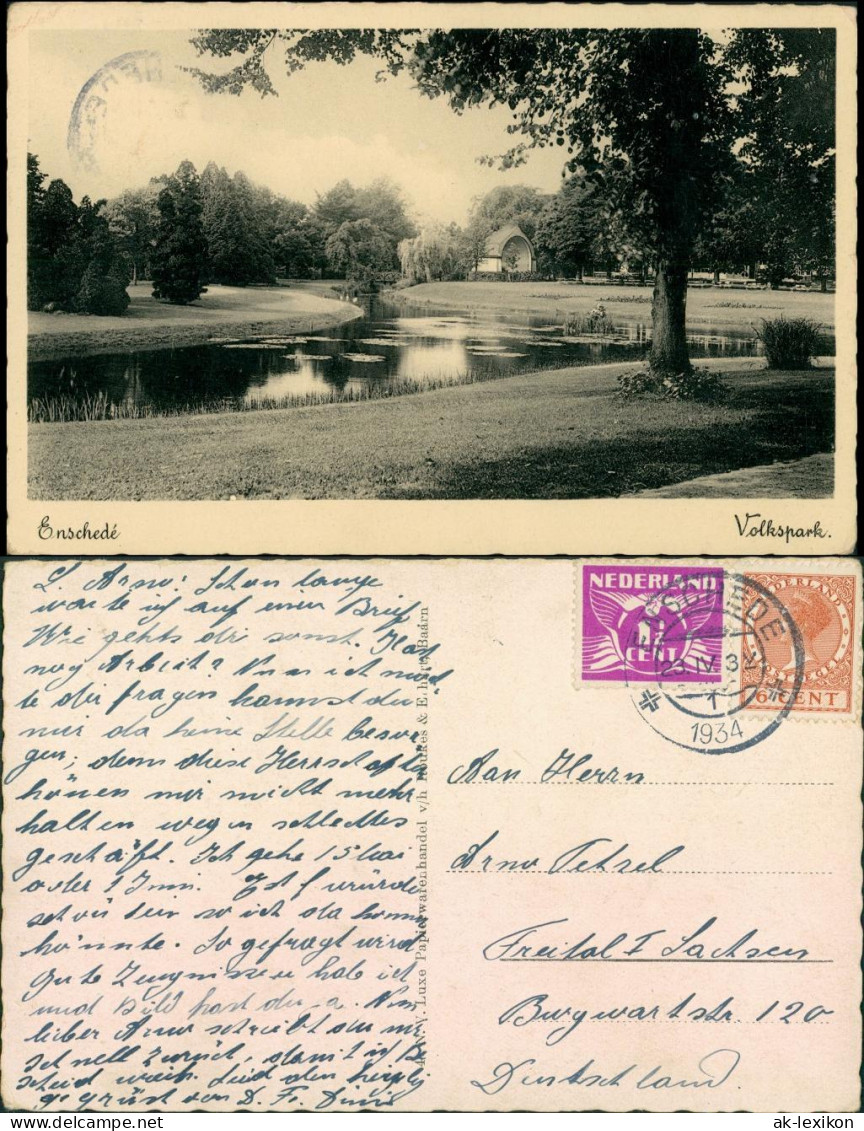 Enschedé
Volkspark.
L. Arno! Schon lange
warte ich auf einen Brief
Wie gehts dir sonst. Hast
noch Arbeit? Nun ich möch
te dir fragen kannst du
mir da keine Stelle besor
gen, denn diese Herrschaften
können mir nicht mehr
halten wegen schlechtes
geschäft. Ich gehe 15 Mai
oder 1 Juni. Es würde
schön sein so ich da kommen
könnte. So gefragt wird
Gute Zeugnissen hab ich
und Bild hast du ja. Nun
lieber Arno schreibt du mir
schnell zurück, damit ich Be
scheid weis. Seid den herzlig
gegrüst von D. Fr.
Luxe Papierwarenhandel v/h Roukes & E. hart, Baarn
NEDERLAND
CENT
NEDERLAND
6 CENT
ENSCHEDE
23.IV.3
1
1934
Aan Herrn
Arno Petzel
Freital I Sachsen
Burgwartstr. 120
Deutschland.
delcampe.net
ak-lexikon